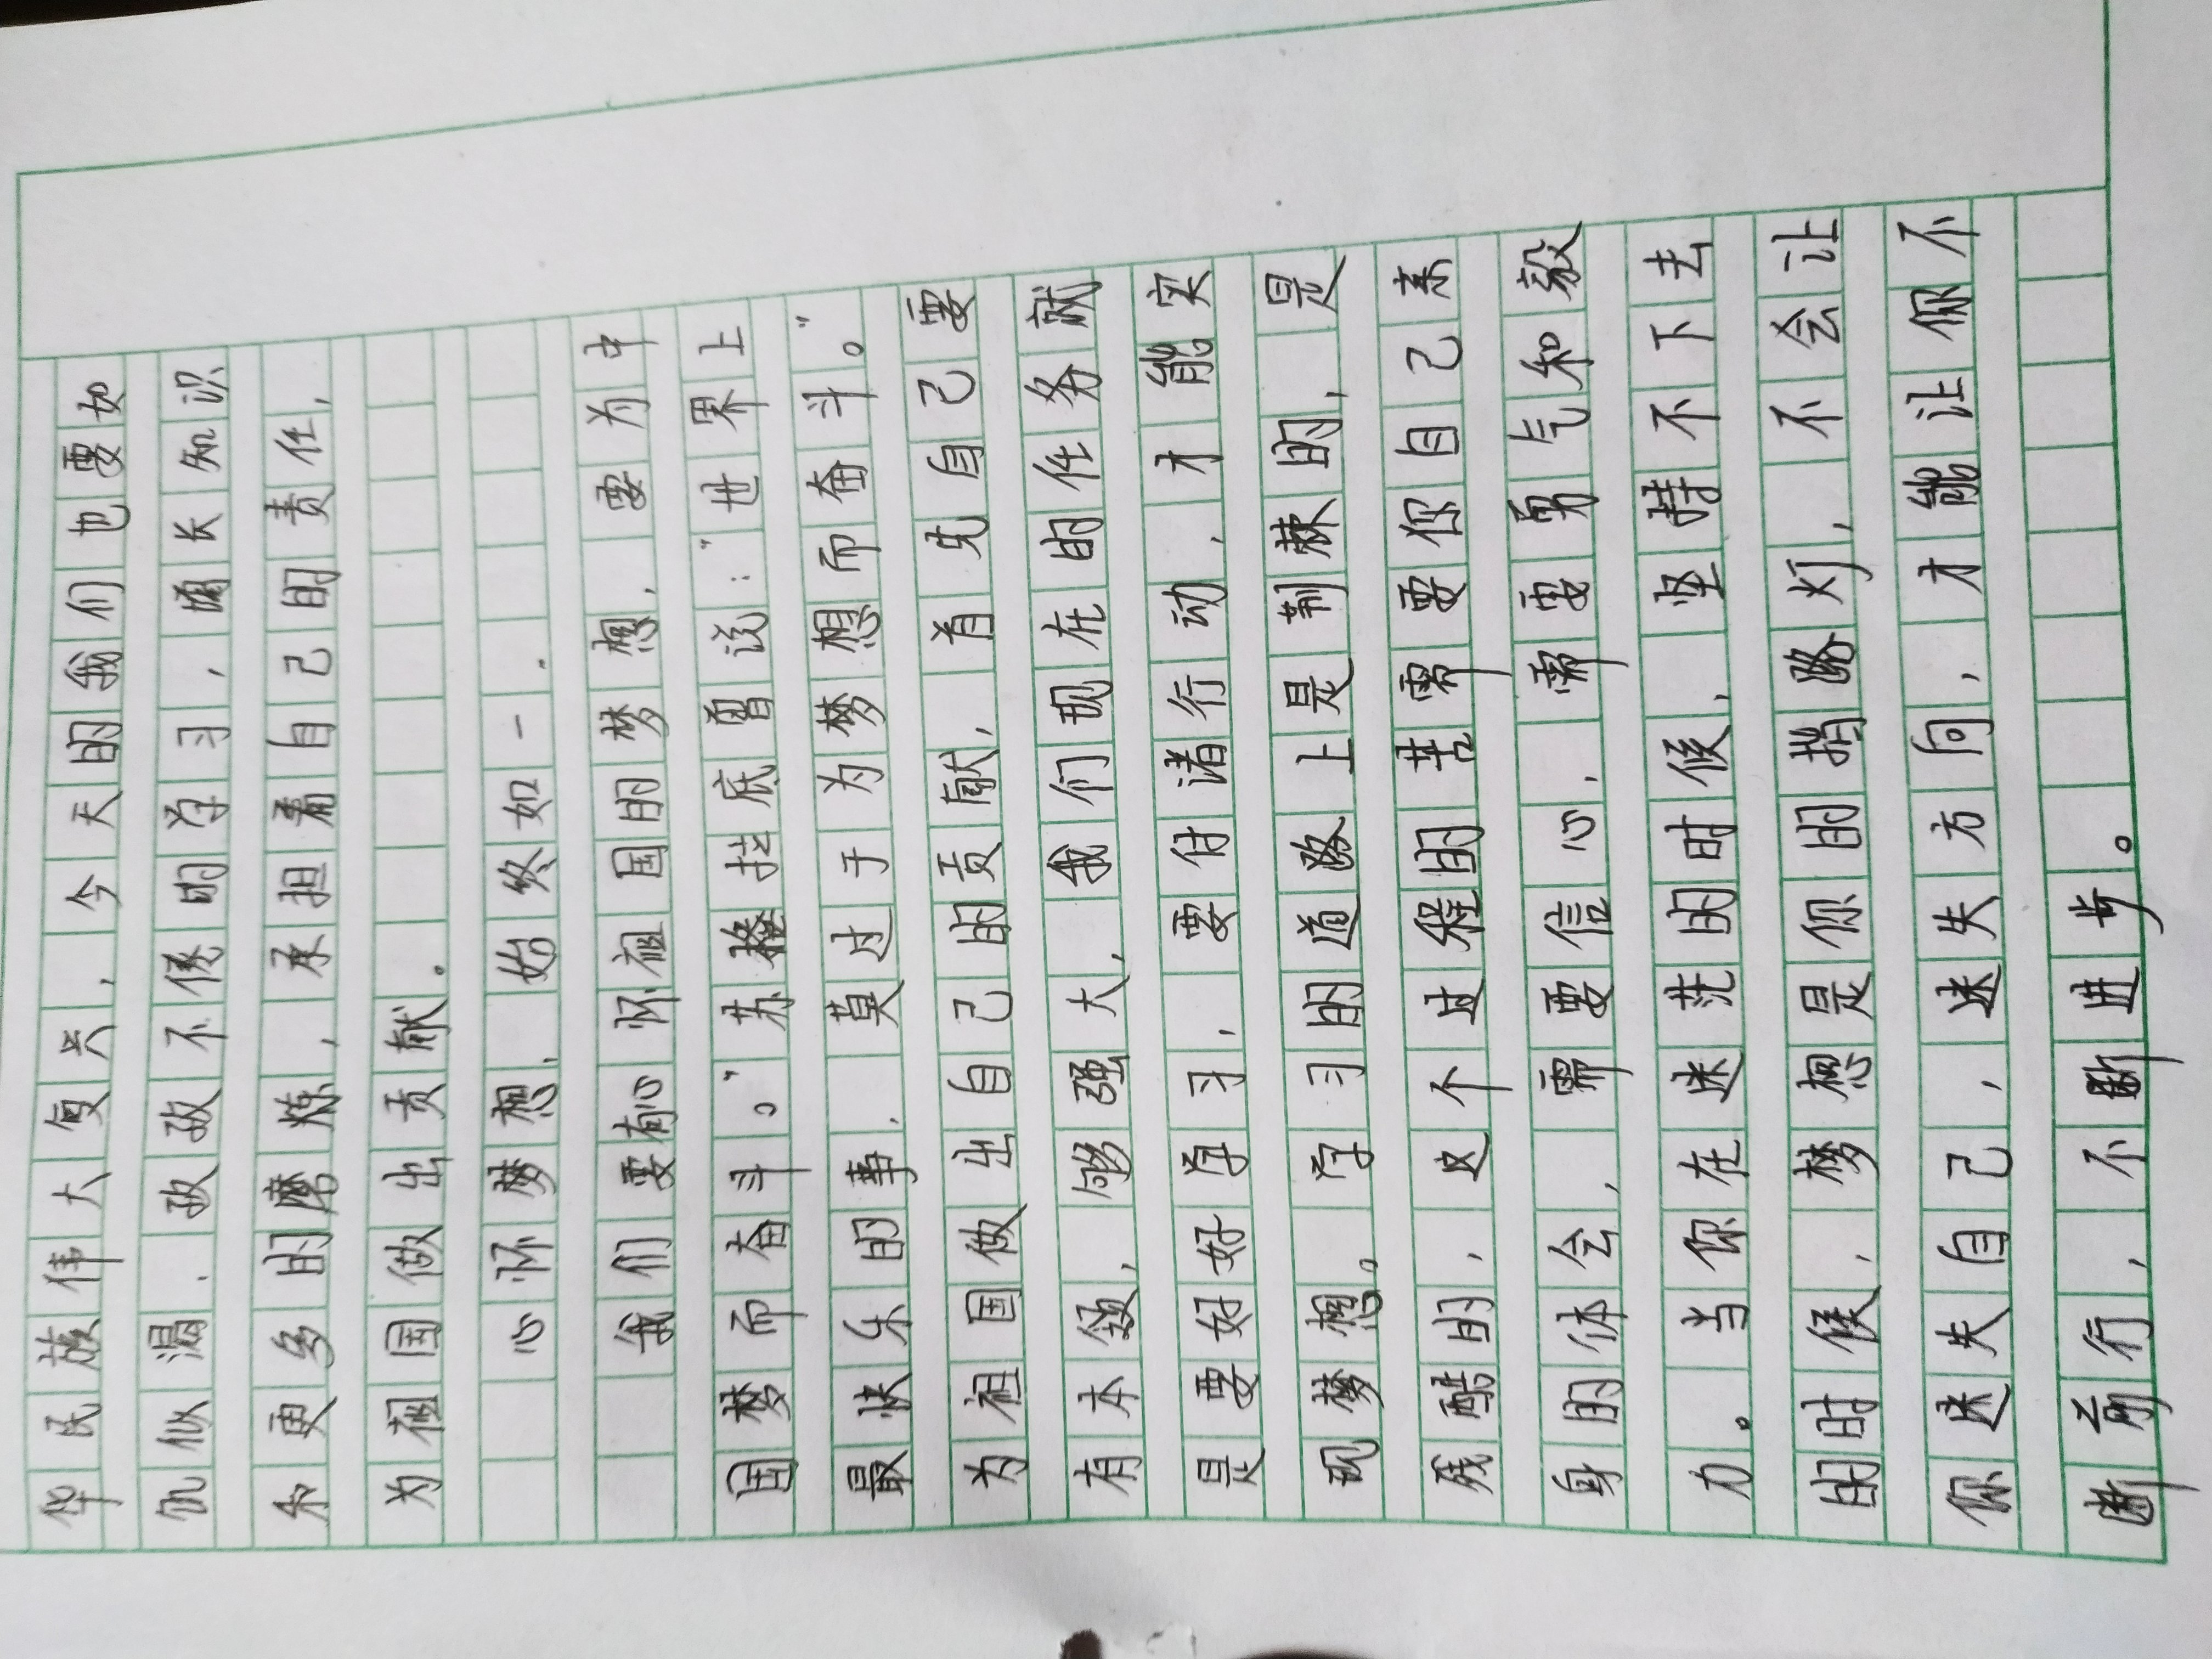 华民族伟大复兴，今天的我们也要如
饥似渴、孜孜不倦的学习，增长知识
和更多的磨炼，承担着自己的责任，
为祖国做出贡献。
心怀梦想，始终如一。
我们要有心怀祖国的梦想，要为中
国梦而奋斗。”苏格拉底曾说：“世界上
最快乐的事，莫过于为梦想而奋斗。”
为祖国做出自己的贡献，首先自己要
有本领，够强大，我们现在的任务就
是要好好学习，要付诸行动，才能实
现梦想。学习的道路上是荆棘的，是
残酷的，这个过程的苦需要你自己亲
身的体会，需要信心，需要勇气和毅
力。当你在迷茫的时候，坚持不下去
的时候，梦想是你的指路灯，不会让
你迷失自己，迷失方向，才能让你不
断前行，不断进步。